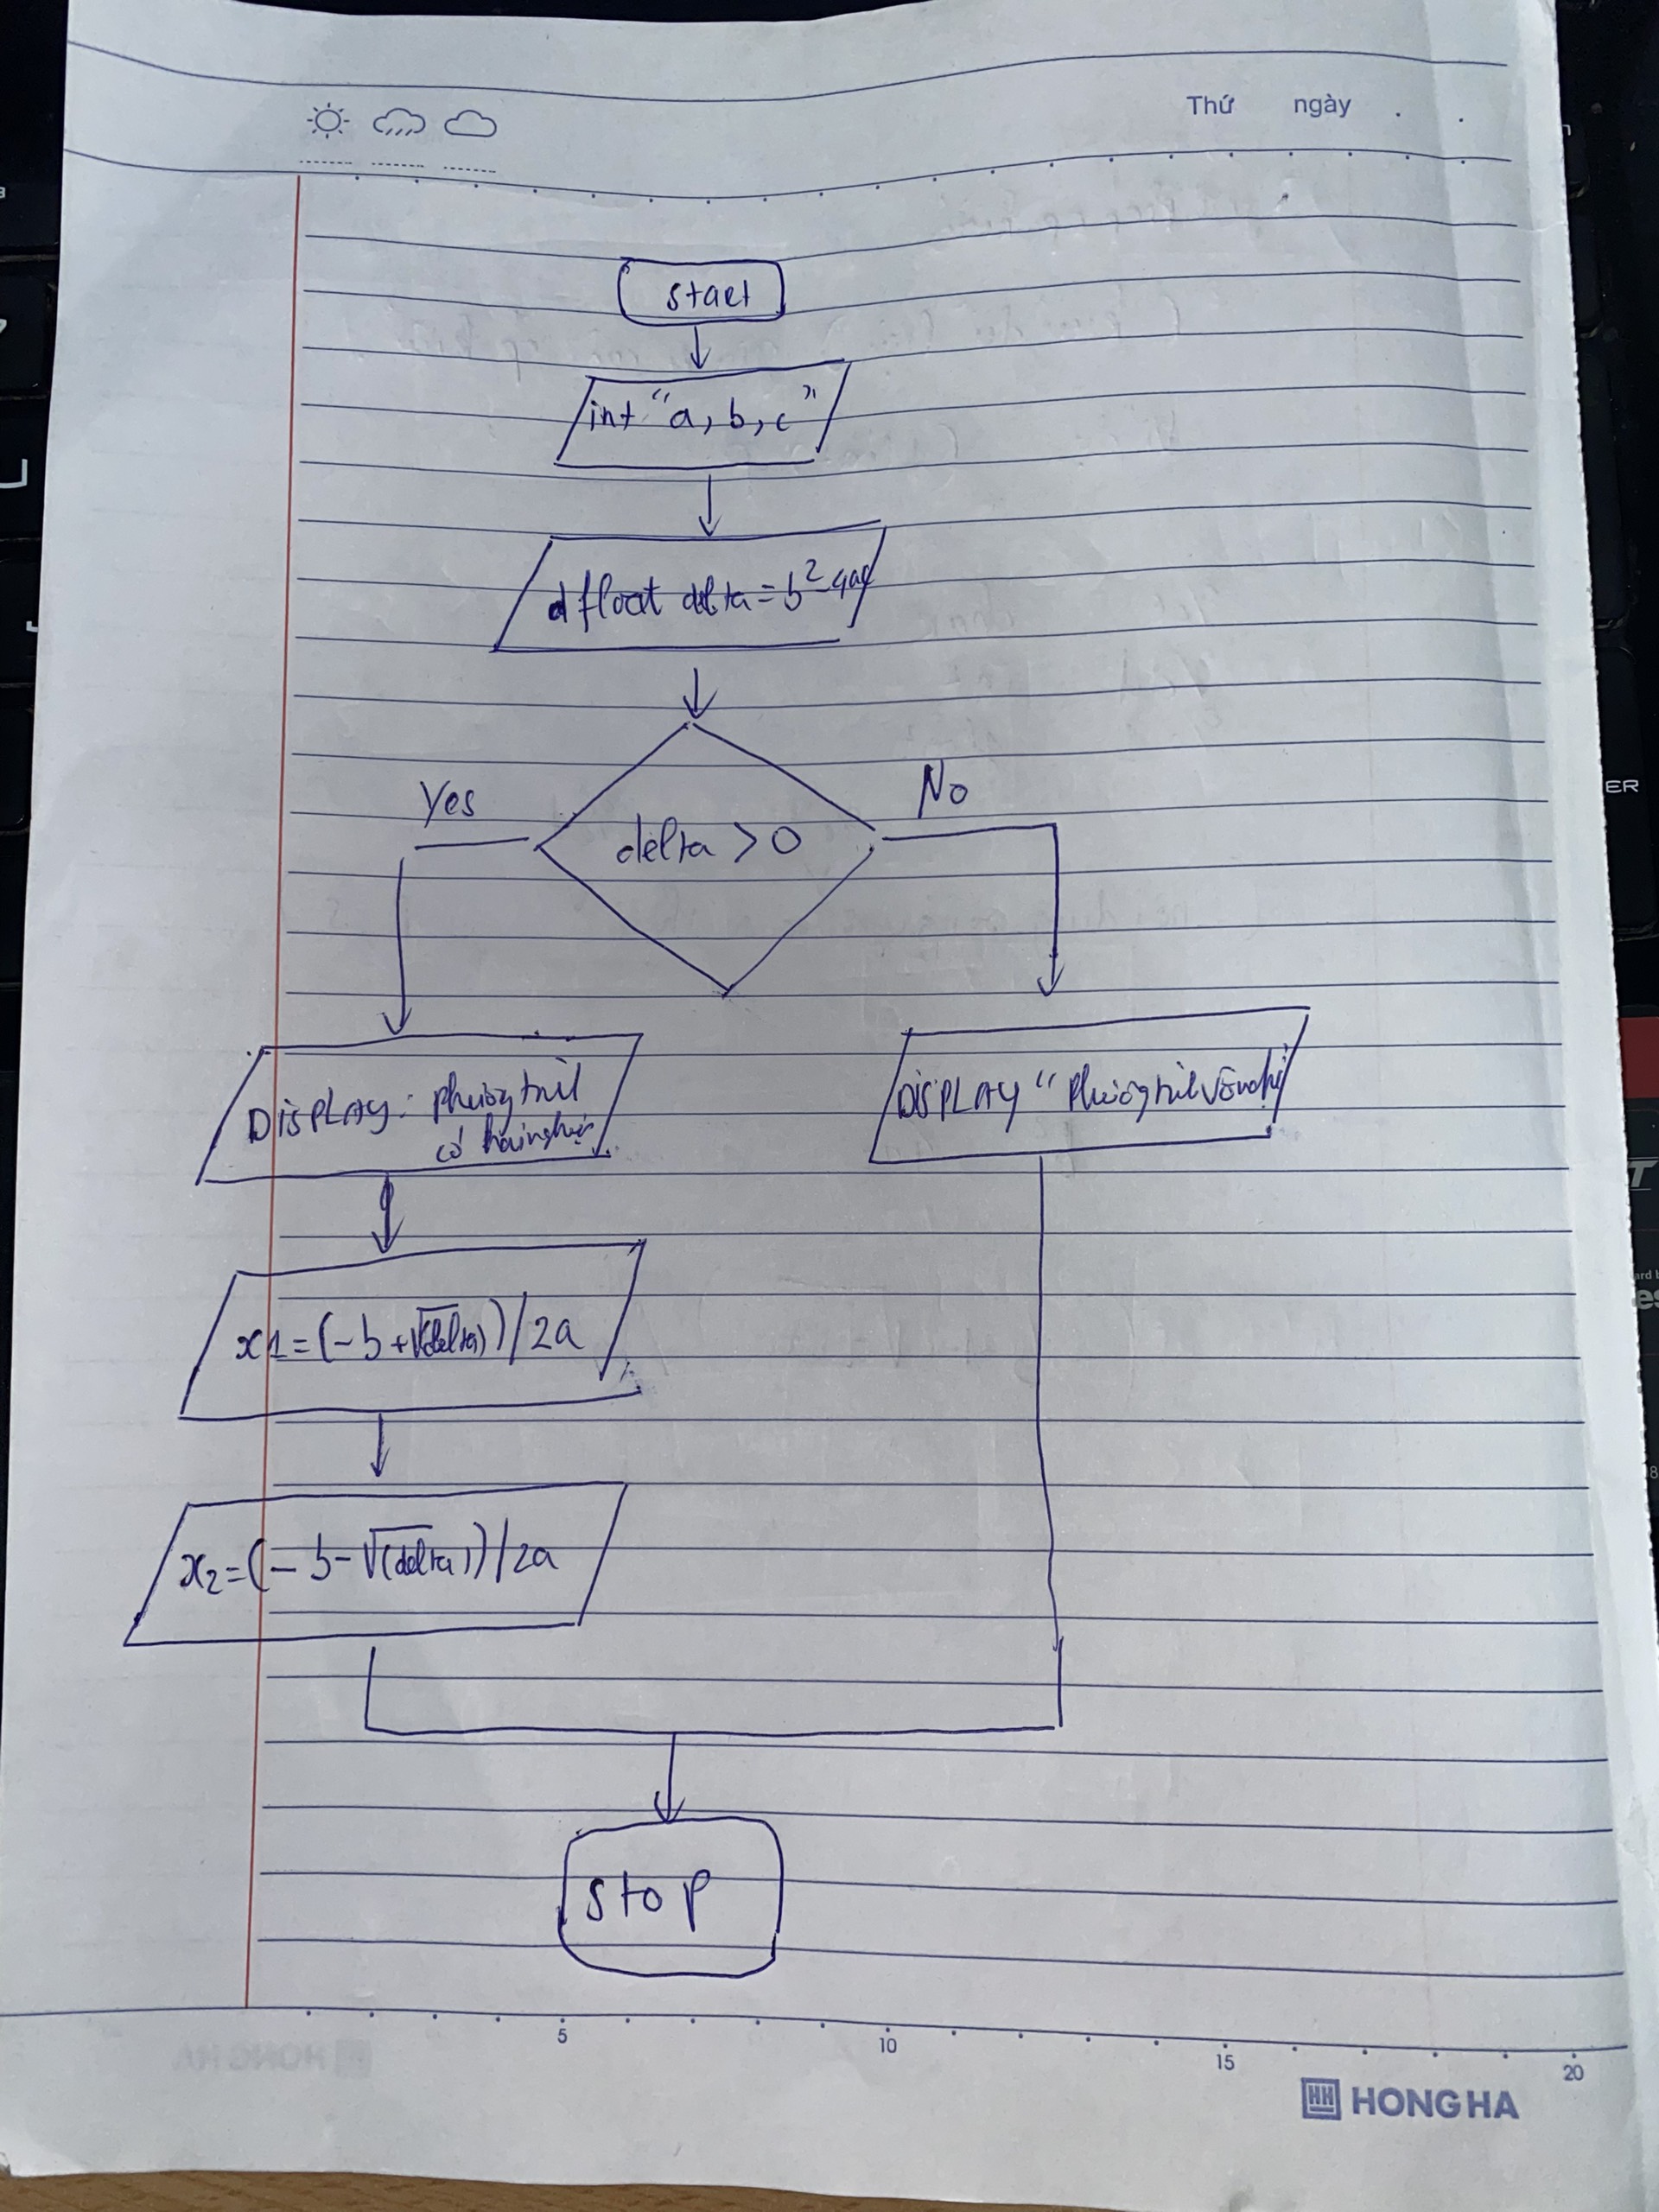 Thứ ngày . .
start
int "a, b, c"
float delta = b² - 4ac
Yes
No
delta > 0
DISPLAY: phương trình
có hai nghiệm
DISPLAY "Phương trình vô nghị
x1 = (-b + √(delta)) / 2a
x2 = (-b - √(delta)) / 2a
stop
5 10 15 20
HONG HA